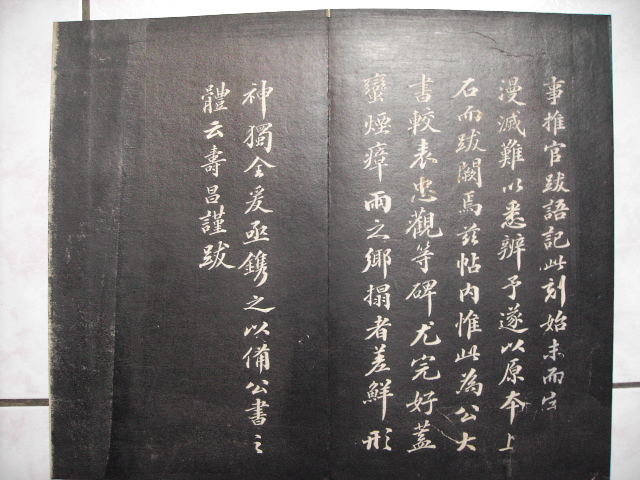 事推官跋語記此刻始末而字
漫滅難以悉辨予遂以原本上
石而跋闕焉茲帖內惟此為公大
書較表忠觀等碑尤完好蓋
蠻煙瘴雨之鄉搨者差鮮形
神獨全爰亟鐫之以備公書之
體云壽昌謹跋